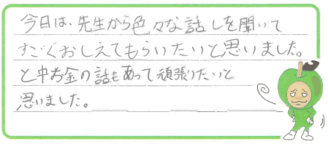 今日は、先生から色々な話しを聞いて
すごくおしえてもらいたいと思いました。
と中お金の話もあって頑張りたいと
思いました。